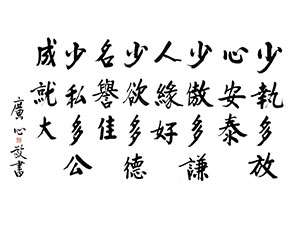 少執多放
心安泰
少傲多謙
人緣好
少欲多德
名譽佳
少私多公
成就大
廣心敬書